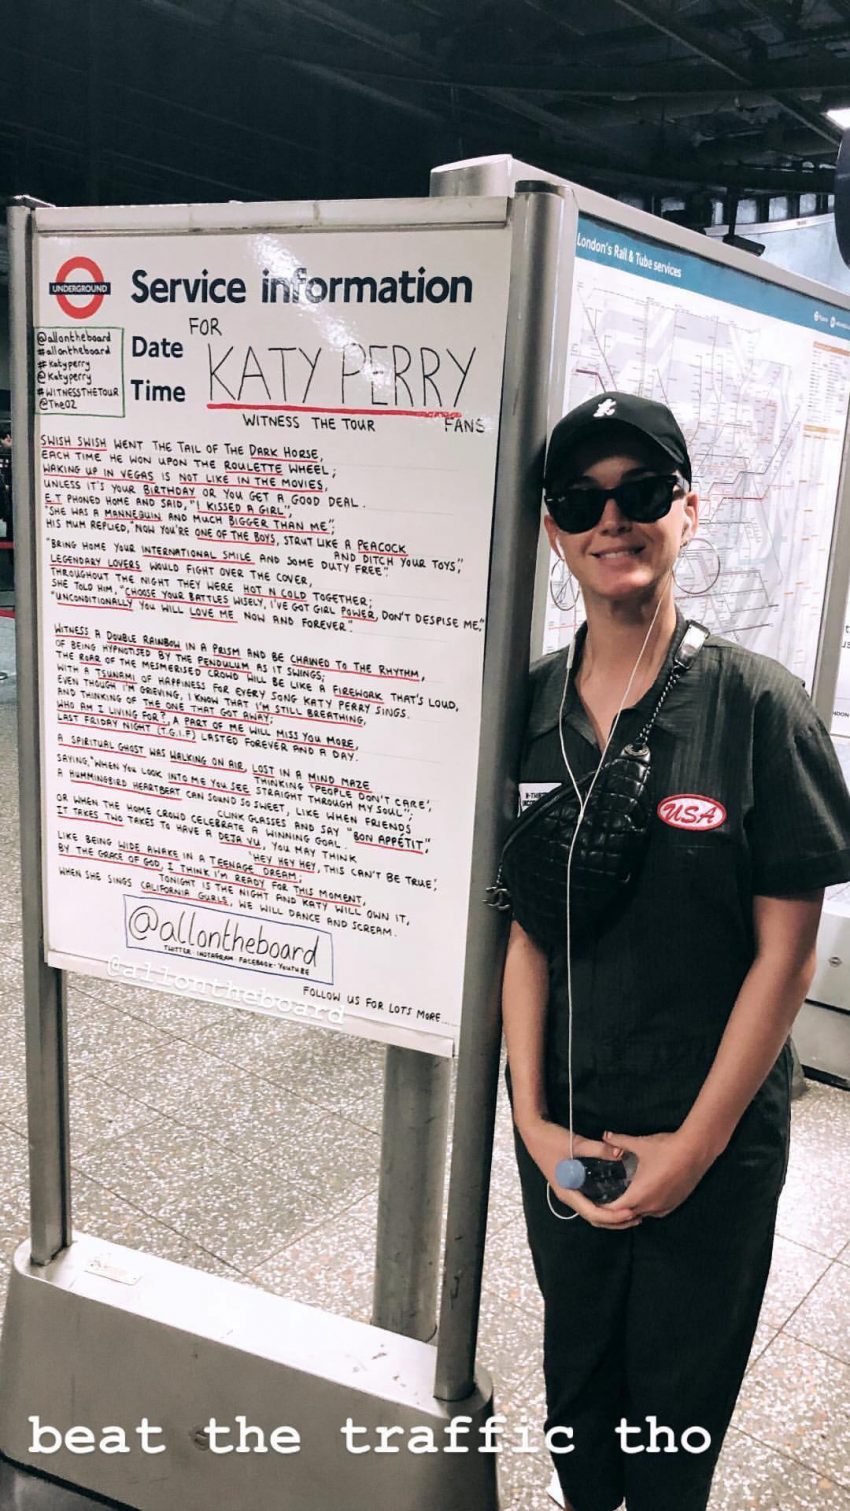 UNDERGROUND
Service information
@allontheboard
#allontheboard
#katyperry
@katyperry
#WITNESSTHETOUR
@TheO2
Date
Time
FOR
KATY PERRY
WITNESS THE TOUR FANS
SWISH SWISH WENT THE TAIL OF THE DARK HORSE,
EACH TIME HE WON UPON THE ROULETTE WHEEL;
WAKING UP IN VEGAS IS NOT LIKE IN THE MOVIES,
UNLESS IT'S YOUR BIRTHDAY OR YOU GET A GOOD DEAL.
E.T PHONED HOME AND SAID, "I KISSED A GIRL",
"SHE WAS A MANNEQUIN AND MUCH BIGGER THAN ME";
HIS MUM REPLIED, "NOW YOU'RE ONE OF THE BOYS, STRUT LIKE A PEACOCK
AND DITCH YOUR TOYS,"
"BRING HOME YOUR INTERNATIONAL SMILE AND SOME DUTY FREE".
LEGENDARY LOVERS WOULD FIGHT OVER THE COVER,
THROUGHOUT THE NIGHT THEY WERE HOT N COLD TOGETHER;
SHE TOLD HIM, "CHOOSE YOUR BATTLES WISELY, I'VE GOT GIRL POWER, DON'T DESPISE ME,"
"UNCONDITIONALLY YOU WILL LOVE ME NOW AND FOREVER".
WITNESS A DOUBLE RAINBOW IN A PRISM AND BE CHAINED TO THE RHYTHM,
OF BEING HYPNOTISED BY THE PENDULUM AS IT SWINGS;
THE ROAR OF THE MESMERISED CROWD WILL BE LIKE A FIREWORK THAT'S LOUD,
WITH A TSUNAMI OF HAPPINESS FOR EVERY SONG KATY PERRY SINGS.
EVEN THOUGH I'M GRIEVING, I KNOW THAT I'M STILL BREATHING,
AND THINKING OF THE ONE THAT GOT AWAY;
WHO AM I LIVING FOR?, A PART OF ME WILL MISS YOU MORE,
LAST FRIDAY NIGHT (T.G.I.F) LASTED FOREVER AND A DAY.
A SPIRITUAL GHOST WAS WALKING ON AIR, LOST IN A MIND MAZE
THINKING 'PEOPLE DON'T CARE',
SAYING, "WHEN YOU LOOK INTO ME YOU SEE STRAIGHT THROUGH MY SOUL";
A HUMMINGBIRD HEARTBEAT CAN SOUND SO SWEET, LIKE WHEN FRIENDS
CLINK GLASSES AND SAY "BON APPÉTIT",
OR WHEN THE HOME CROWD CELEBRATE A WINNING GOAL.
IT TAKES TWO TAKES TO HAVE A DEJA VU, YOU MAY THINK
'HEY HEY HEY, THIS CAN'T BE TRUE',
LIKE BEING WIDE AWAKE IN A TEENAGE DREAM;
BY THE GRACE OF GOD, I THINK I'M READY FOR THIS MOMENT,
TONIGHT IS THE NIGHT AND KATY WILL OWN IT,
WHEN SHE SINGS CALIFORNIA GURLS, WE WILL DANCE AND SCREAM.
@allontheboard
TWITTER · INSTAGRAM · FACEBOOK · YOUTUBE
@allontheboard
FOLLOW US FOR LOTS MORE...
London's Rail & Tube services
USA
beat the traffic tho